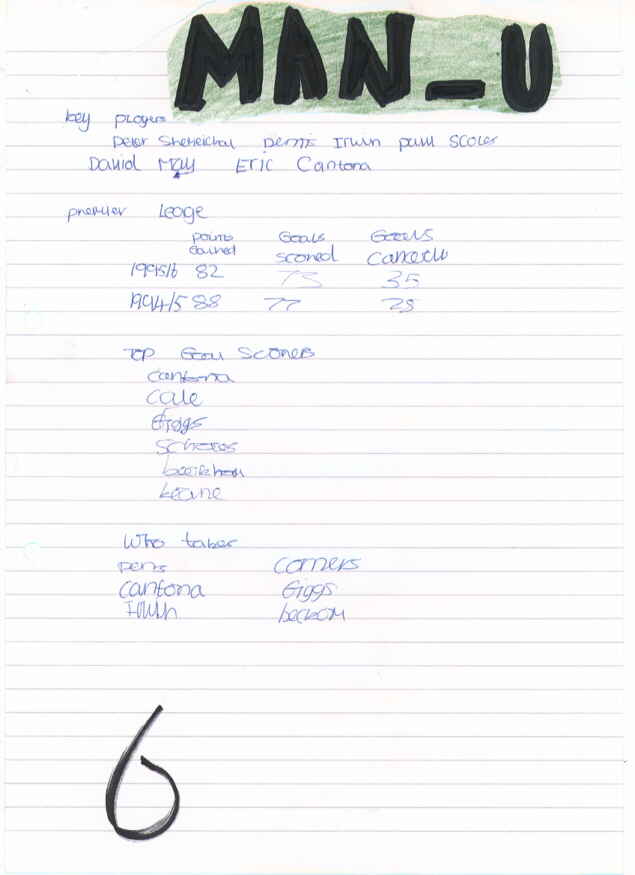 MAN_U
key players
Peter Shcheichal Denis Irwin paul Scoler
David May Eric Cantona
premier leage
points Goals Goals
earned scored
1995/6 82 73 35
1994/5 88 77 28
Top Goal Scorers
cantona
cole
Giggs
Scholes
beckham
keane
Who takes
pens corners
cantona Giggs
Irwin beckom
6